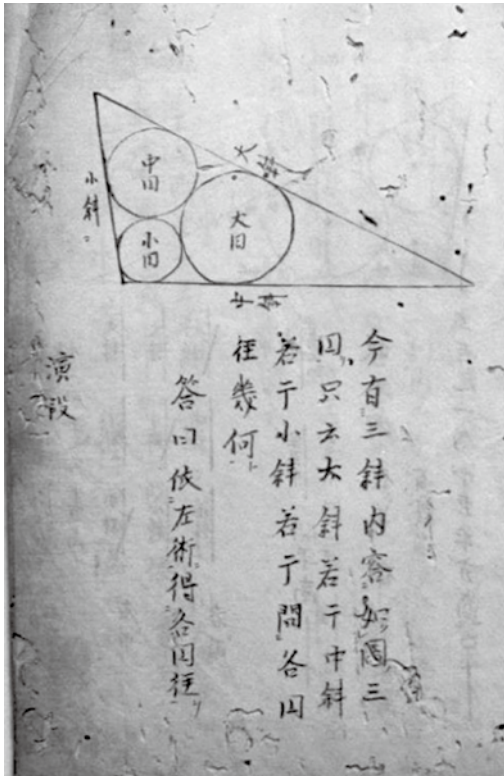 中円
小円
大円
大斜
小斜。
中斜
今有三斜内容如圖三
円只云大斜若干中斜
若干小斜若干問各円
径幾何
答曰依左術得各円径
演段